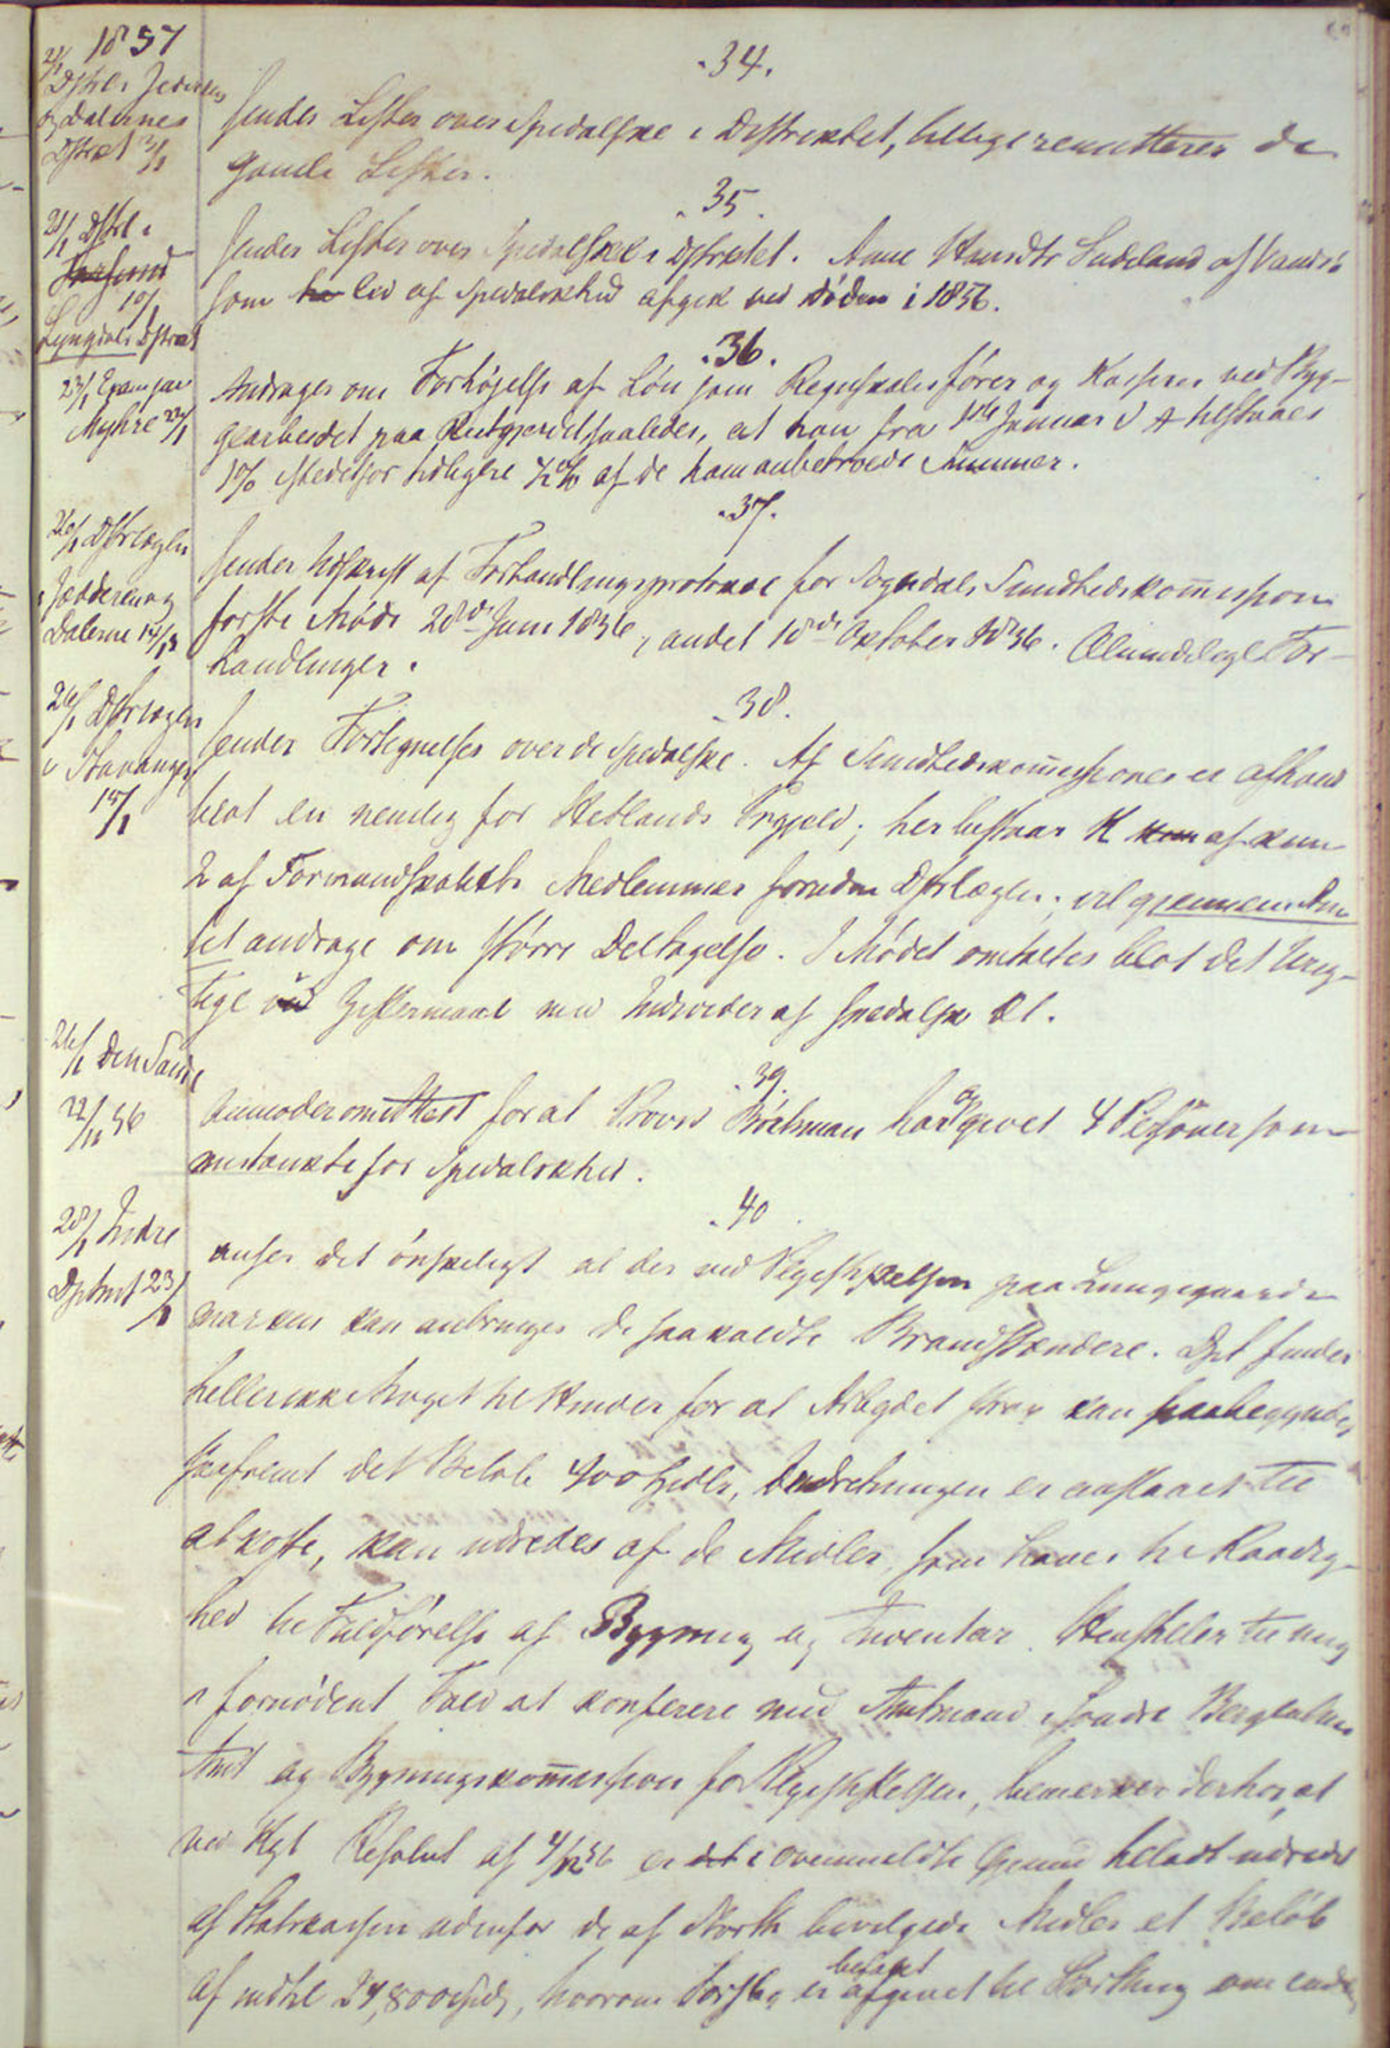 1857
21/1 Dstrl i Jederens
og Dalernes
Dstrkt 12/1
34.
sender Lister over Spedalske i Distriktet, tillige remitteres de
gamle Lister.
35.
21/1 Dstrl i
10/1
Lyngdals Dstrikt
sender Lister over Spedalske i Dstriktet. Anne Hansdtr Ladeland af Vanse
som led af Spedalskhed afgik ved Døden i 1856.
36.
23/1 Exam jur
Myhre 22/1
Andrager om Forhøielse af Løn som Regnskabsfører og Kasserer ved Byg-
gearbeidet paa Reitgjerdet saaledes, at han fra 1ste Januar d A tilstaaes
1% istedetfor tidligere ½% af de ham anbetroede Summer.
37.
26/1 Dstrlægen
i Jædderen og
Dalerne 14/1
sender Udskrift af Forhandlingsprotokol for Sogndals Sundhedskommission
første Møde 28de Juni 1856, andet 18de Oktober 1856. Almindelige For-
handlinger.
38.
26/1 Dstrlægen
i Stavanger
15/1
sender Fortegnelser over de spedalske. Af Sundhedskommissioner er afholdt
blot en nemlig for Hetlands Prgjeld; her bestaar K af kun
2 af Formandskabets Medlemmer foruden Dstrlægen; vil gjennem Am
tet andrage om større Deltagelse. I Mødet omtaltes blot det Urig-
tige ved Giftermaal med Individer af spedalsk Æt.
39.
26/1 Den Samme
22/11 56
Anmoder om Attest for at Provst har opgivet 4 Personer som
mistænkte for Spedalskhed.
40.
28/1 Indre
Dptmt 23/1
anser det ønskeligt at der ved Pleiestiftelsen paa Lungegaards
marken kan anbringes de saakaldte Brandstændere. Dpt finder
heller ikke Noget til Hinder for at Arbeidet strax kan paabegyndes,
saafremt det Beløb 400 Spdlr, Indretningen er anslaaet til
at koste, kan udredes af de Midler, som haves til Raadig-
hed til Fuldførelse af Bygning og Inventar. Henstiller til mig
i fornødent Fald at konferere med Amtmand i Søndre Bergenhus
Amt og Bygningskommission for Pleiestiftelsen, bemærker derhos, at
ved Kgl Resolut af 4/12 56 er i ovenmeldte Øiemed tilladt udredet
af Statskassen udenfor de af Storth bevilgede Midler et Beløb
af indtil 24,800 Spd, hvorom Forslag er befalet afgivet til Storthing om